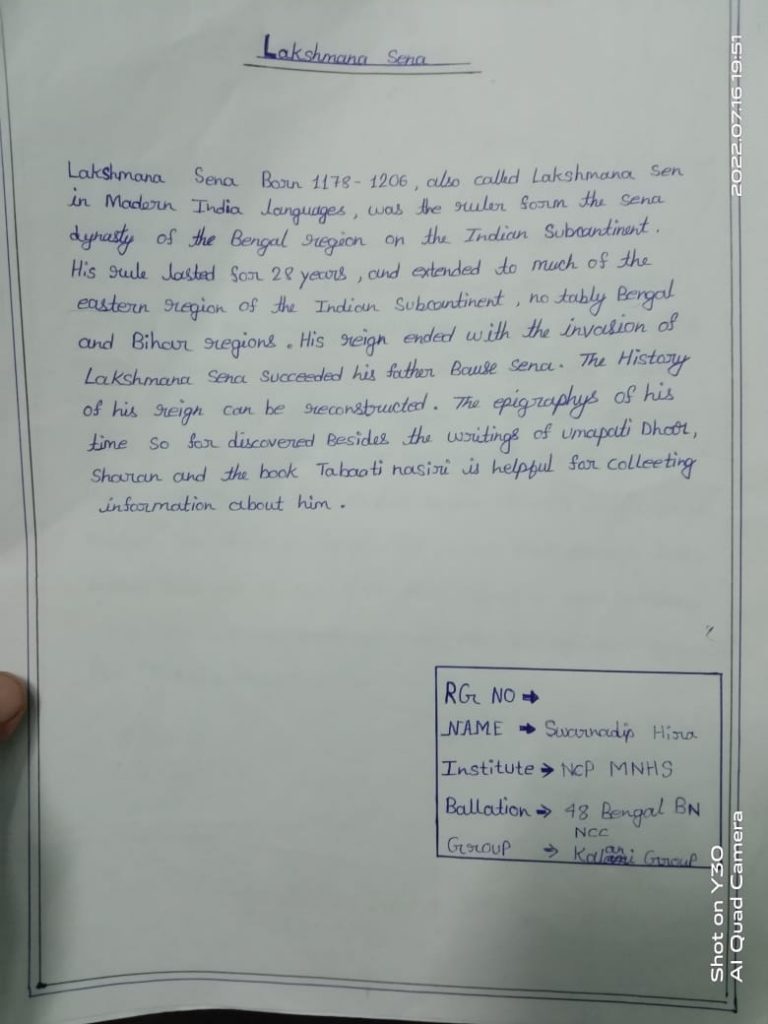 Lakshmana Sena
Lakshmana Sena Born 1178-1206, also called Lakshmana Sen
in Madern India languages, was the ruler form the sena
dynasty of the Bengal region on the Indian Subcontinent.
His rule lasted for 28 years, and extended to much of the
eastern region of the Indian Subcontinent, no tably Bengal
and Bihar regions. His reign ended with the invasion of
Lakshmana Sena Succeeded his father Bause Sena. The History
of his reign can be reconstructed. The epigraphys of his
time So far discovered Besides the writings of umapati Dhar,
Sharan and the book Tabaoti nasiri is helpful for colleeting
information about him.
RG NO →
NAME → Swarnadip Hira
Institute → NCP MNHS
Ballation → 48 Bengal BN
NCC
Group → Kalani Group
2022.07.16 19:51
Shot on Y30
AI Quad Camera